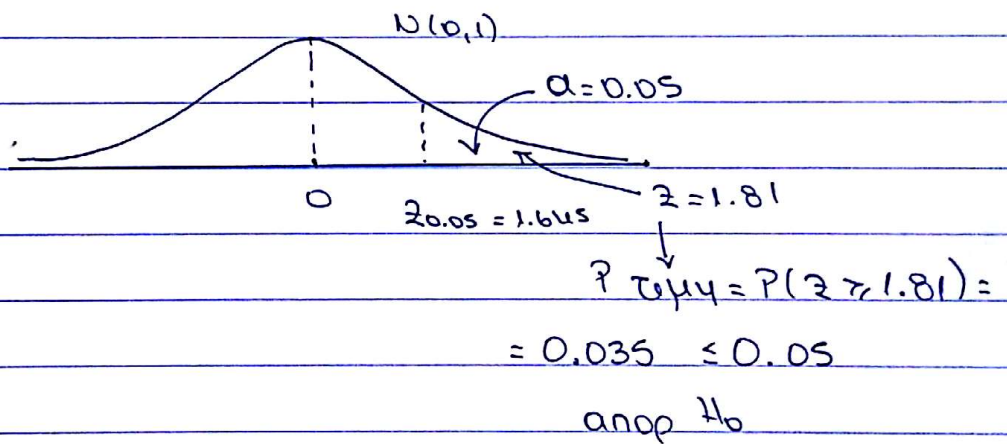 N(0,1)
α=0.05
0
Z0.05 = 1.645
Z=1.81
P τιμή = P(Z ≥ 1.81) =
= 0.035 ≤ 0.05
απορ H0